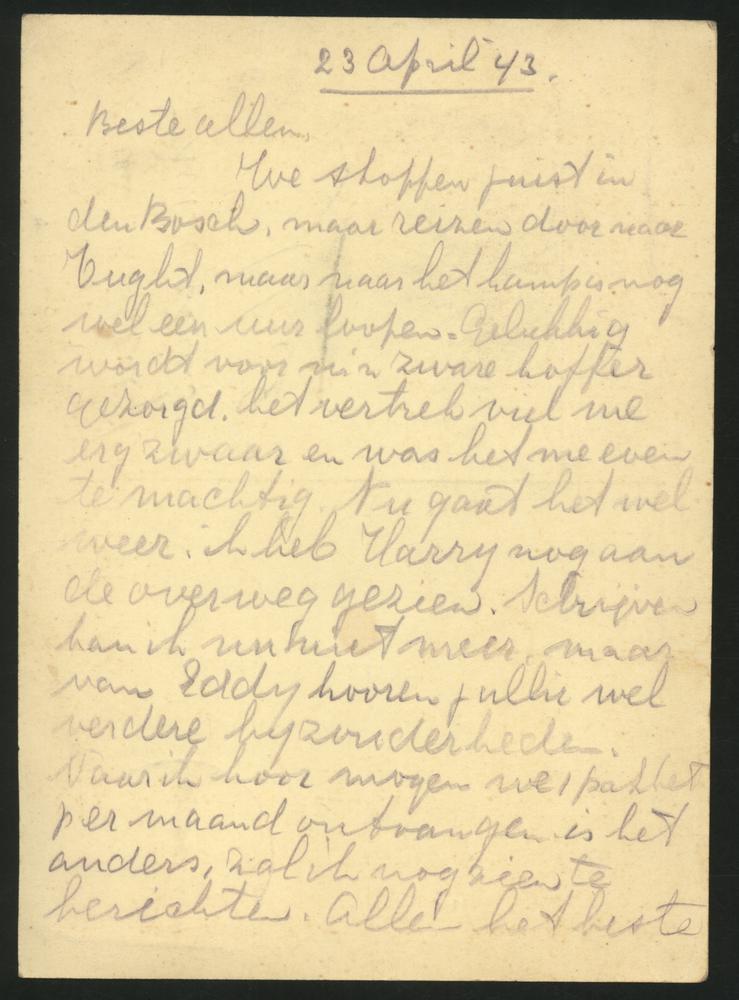 23 April '43.
Beste allen,
We stoppen juist in
den Bosch, maar reizen door naar
Vught, maar naar het kamp is nog
wel een uur loopen. Gelukkig
wordt voor mijn zware koffer
gezorgd. het vertrek viel me
erg zwaar en was het me even
te machtig. Nu gaat het wel
weer. ik heb Harry nog aan
de overweg gezien. Schrijven
kan ik nu niet meer, maar
van Eddy hooren jullie wel
verdere byzonderheden.
Naar ik hoor mogen we 1 pakket
per maand ontvangen is het
anders, zal ik nog zien te
berichten. Allen het beste